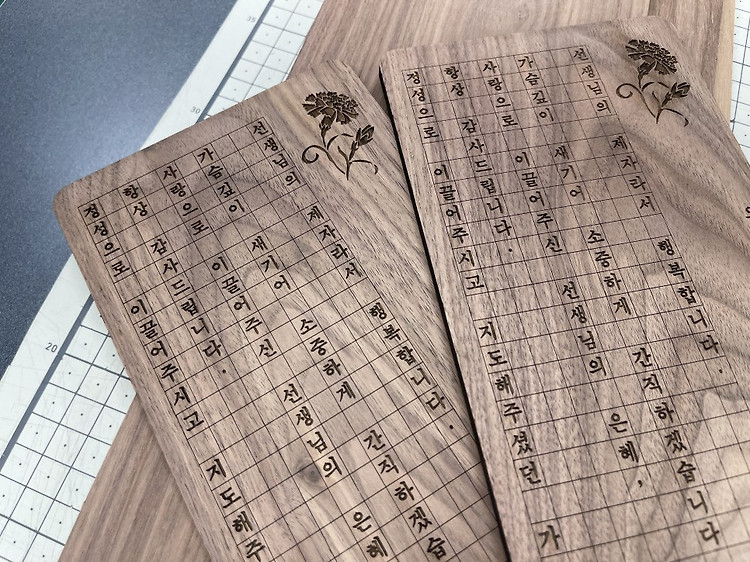 선생님의 제자라서 행복합니다.
가슴깊이 새기어 소중하게 간직하겠습
사랑으로 이끌어주신 선생님의 은혜
항상 감사드립니다.
정성으로 이끌어주시고 지도해주
선생님의 제자라서 행복합니다.
가슴깊이 새기어 소중하게 간직하겠습니다
사랑으로 이끌어주신 선생님의 은혜,
항상 감사드립니다.
정성으로 이끌어주시고 지도해주셨던 가
35
30
20